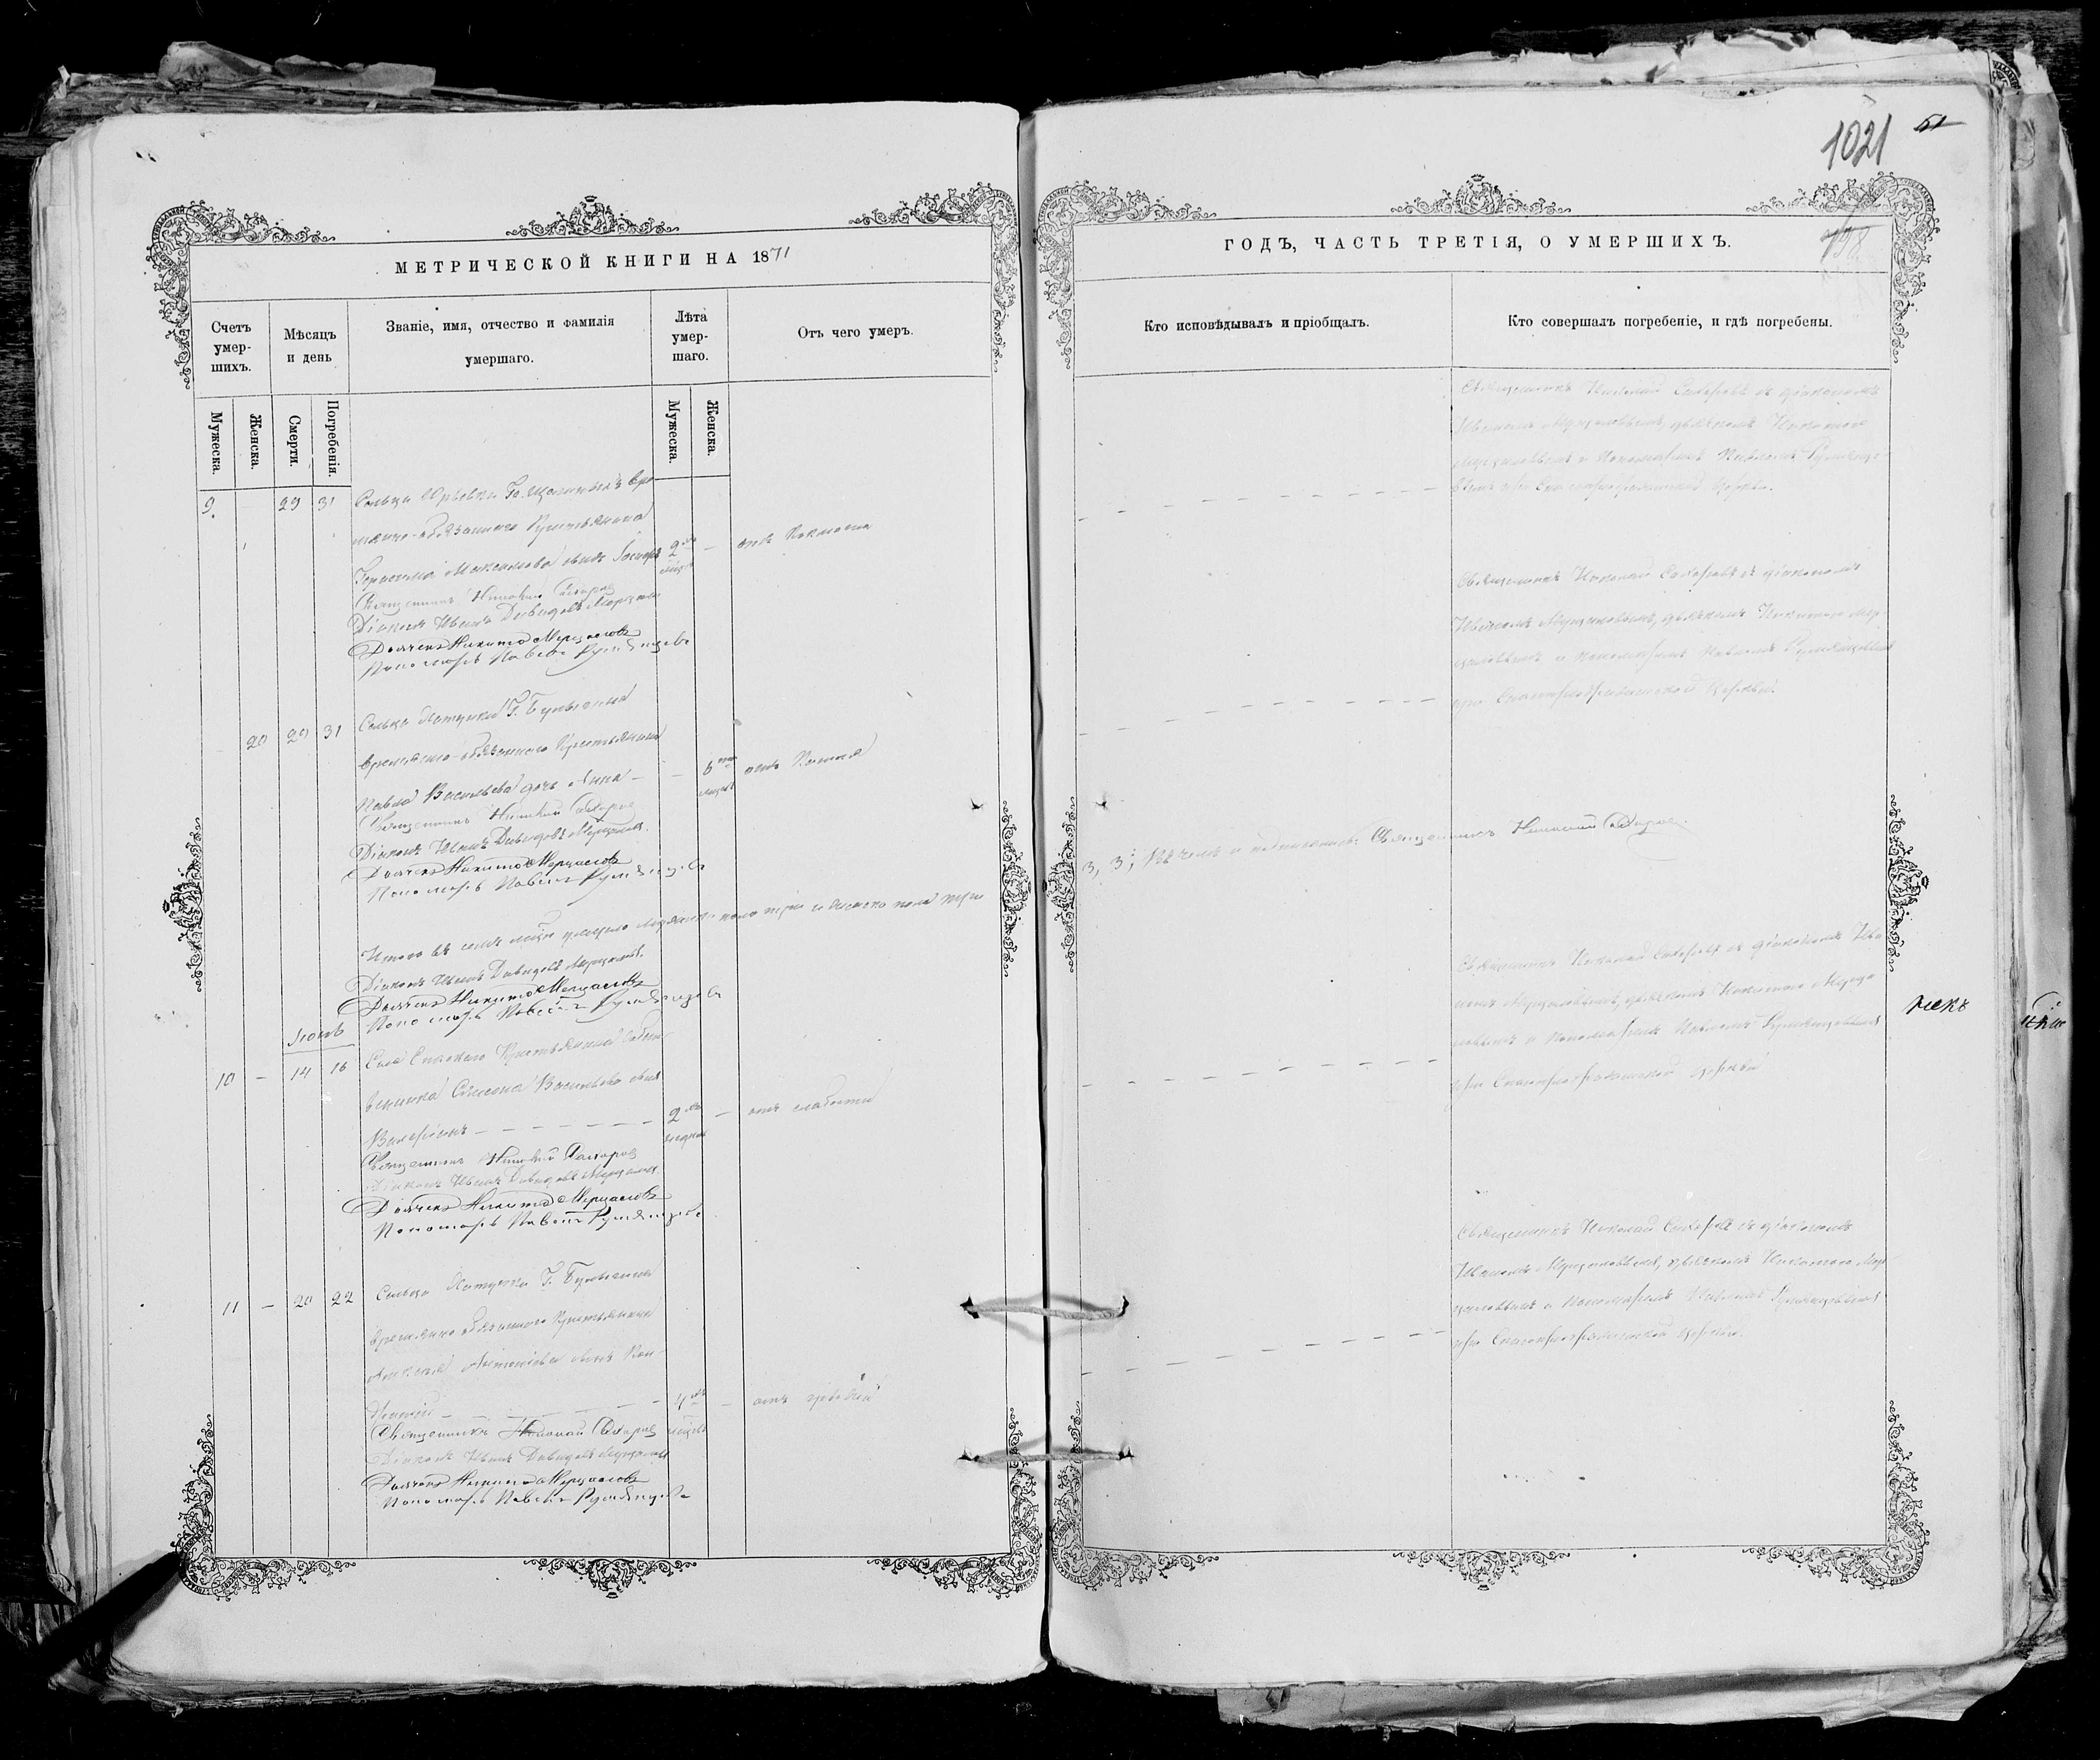 МЕТРИЧЕСКОЙ КНИГИ НА 1871
Счетъ умер-
шихъ.
Мѣсяцъ
и день
Званіе, имя, отчество и фамилія
умершаго.
Лѣта
умер-
шаго.
Отъ чего умеръ.
Мужеска.
Женска.
Смерти.
Погребенія.
Мужеска.
Женска.
9. 29 31 Сельца Юрьевки
обязаннаго Крестьянина
2
Священникъ Николай Сахаровъ
Діаконъ Иванъ Давидовъ Мерцаловъ
Дьячекъ Никита Мерцаловъ
Пономарь Павелъ Румянцевъ
20 29 31 Сельца Г. Булыгина
временно-обязаннаго Крестьянина
Павла Васильева дочь Анна – – 6
Священникъ Николай Сахаровъ
Діаконъ Иванъ Давидовъ Мерцаловъ
Дьячекъ Никита Мерцаловъ
Пономарь Павелъ Румянцевъ
Итого въ семъ умерло мужеска пола три и женска пола три
Діаконъ Иванъ Давидовъ Мерцаловъ
Дьячекъ Никита Мерцаловъ
Пономарь Павелъ Румянцевъ
Іюнь
10 – 14 16 Села Спаскаго Крестьянина
Симеона Васильева сынъ
Валеріанъ – – – – – – 2 – отъ слабости
Священникъ Николай Сахаровъ
Діаконъ Иванъ Давидовъ Мерцаловъ
Дьячекъ Никита Мерцаловъ
Пономарь Павелъ Румянцевъ
11 – 20 22 Сельца Г. Булыгина
временно обязаннаго Крестьянина
Антоніева сынъ
4 –
Священникъ Николай Сахаровъ
Діаконъ Иванъ Давидовъ Мерцаловъ
Дьячекъ Никита Мерцаловъ
Пономарь Павелъ Румянцевъ
1021 51
798
ГОДЪ, ЧАСТЬ ТРЕТІЯ, О УМЕРШИХЪ.
Кто исповѣдывалъ и пріобщалъ.
Кто совершалъ погребеніе, и гдѣ погребены.
Священникъ Николай Сахаровъ съ діакономъ
Иваномъ Мерцаловымъ, дьячкомъ Никитою
Мерцаловымъ и Пономаремъ Павломъ Румянце-
вымъ при Спасопреображенской Церкви.
Священникъ Николай Сахаровъ съ діакономъ
Иваномъ Мерцаловымъ, дьячкомъ Никитою Мер-
цаловымъ и Пономаремъ Павломъ Румянцевымъ
при Спасопреображенской Церкви.
3, 3; Священникъ Николай Сахаровъ.
Священникъ Николай Сахаровъ съ діакономъ Ива-
номъ Мерцаловымъ, дьячкомъ Никитою Мерца-
ловымъ и Пономаремъ Павломъ Румянцевымъ
при Спасопреображенской Церкви
Священникъ Николай Сахаровъ съ діакономъ
Иваномъ Мерцаловымъ, дьячкомъ Никитою Мер-
цаловымъ и Пономаремъ Павломъ Румянцевымъ
при Спасопреображенской Церкви.